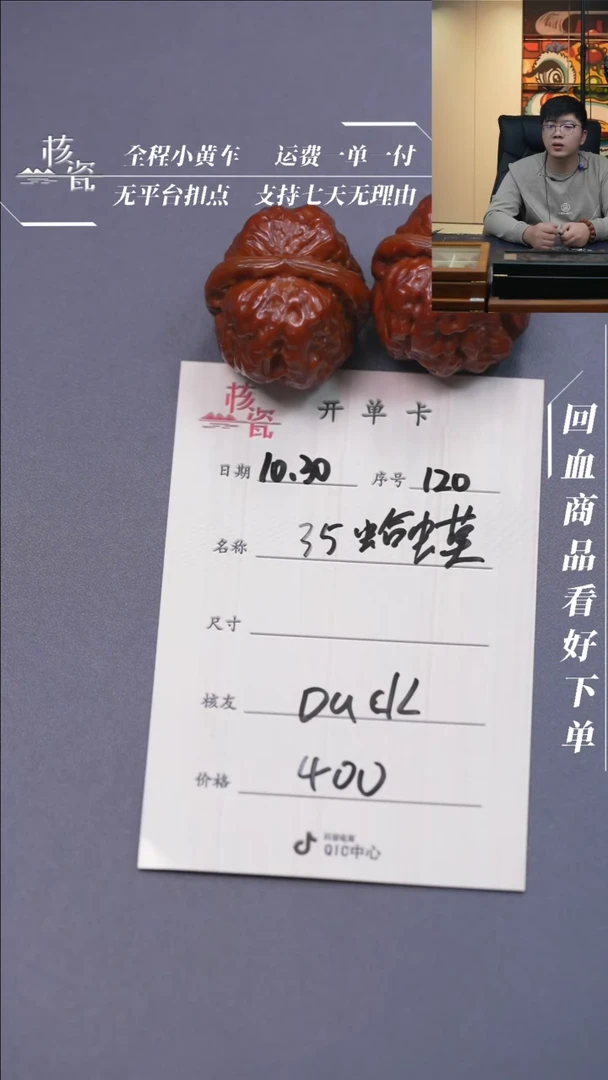 核瓷
全程小黄车 运费一单一付
无平台扣点 支持七天无理由
回血商品看好下单
核瓷
开单卡
日期 10.30 序号 120
名称 35蛤蟆
尺寸
核友 Duck
价格 400
抖音电商
QIC中心